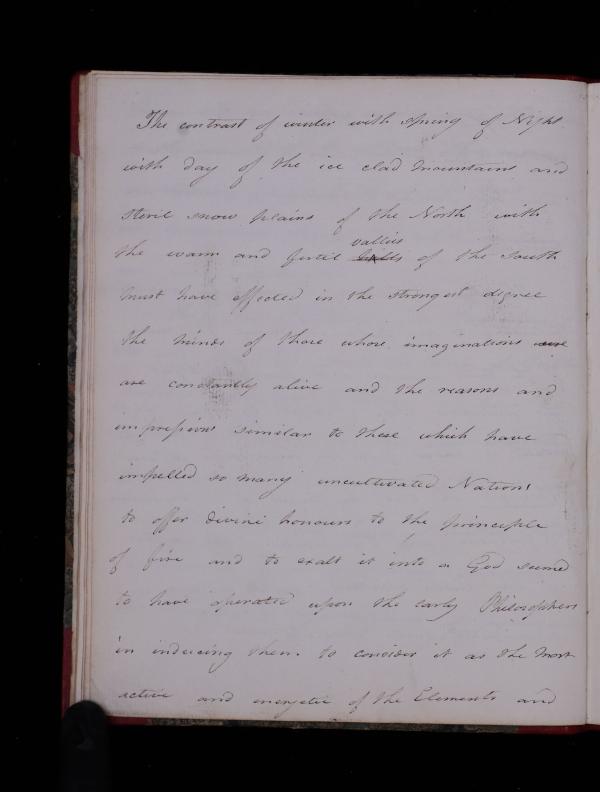 The contrast of winter with spring of Night
with day of the ice clad mountains and
steril snow plains of the North with
vallies
the warm and fertil hills of the South
must have effected in the strongest degree
the minds of those whose imaginations are
are constantly alive and the reasons and
impressions similar to these which have
impelled so many uncultivated Nations
to offer divine honours to the principle
of fire and to exalt it into a God seemed
to have operated upon the early Philosophers
in inducing them to consider it as the most
active and energetic of the Elements and